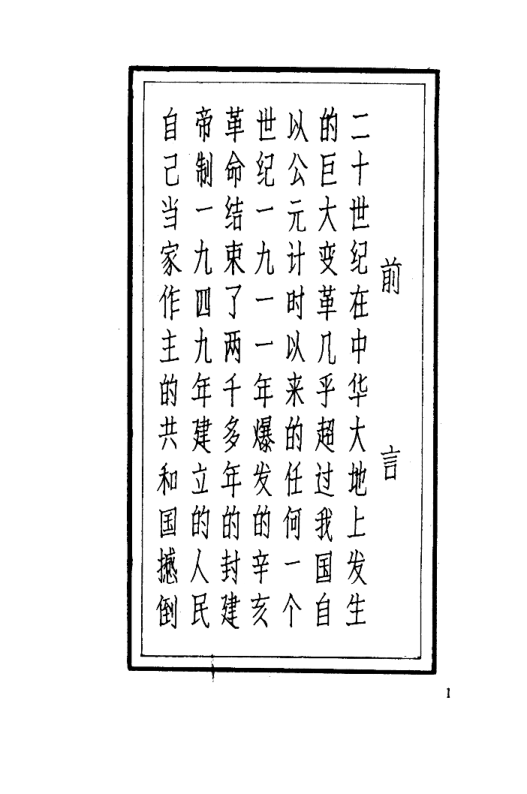 前言
二十世纪在中华大地上发生
的巨大变革几乎超过我国自
以公元计时以来的任何一个
世纪一九一一年爆发的辛亥
革命结束了两千多年的封建
帝制一九四九年建立的人民
自己当家作主的共和国撼倒
1